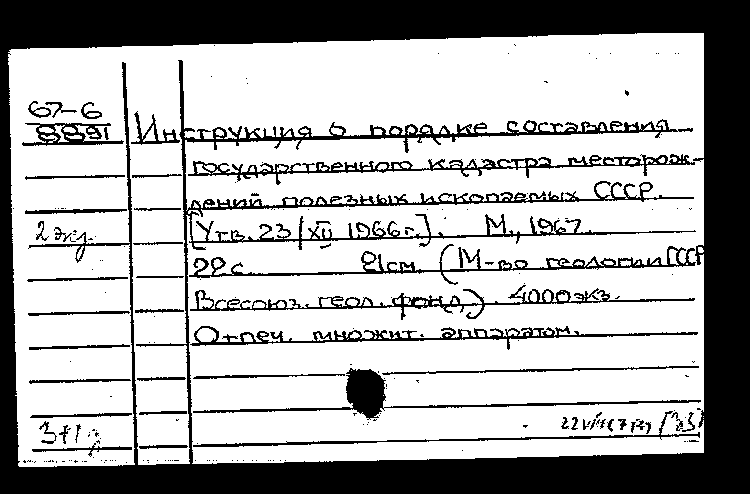 67-6
8891
Инструкция о порядке составления
государственного кадастра месторож-
дений полезных ископаемых СССР.
2 экз.
[Утв. 23/XII 1966г.]. М., 1967.
22 с. 21см. (М-во геологии СССР
Всесоюз. геол. фонд). 4000экз.
Отпеч. множит. аппаратом.
3+1